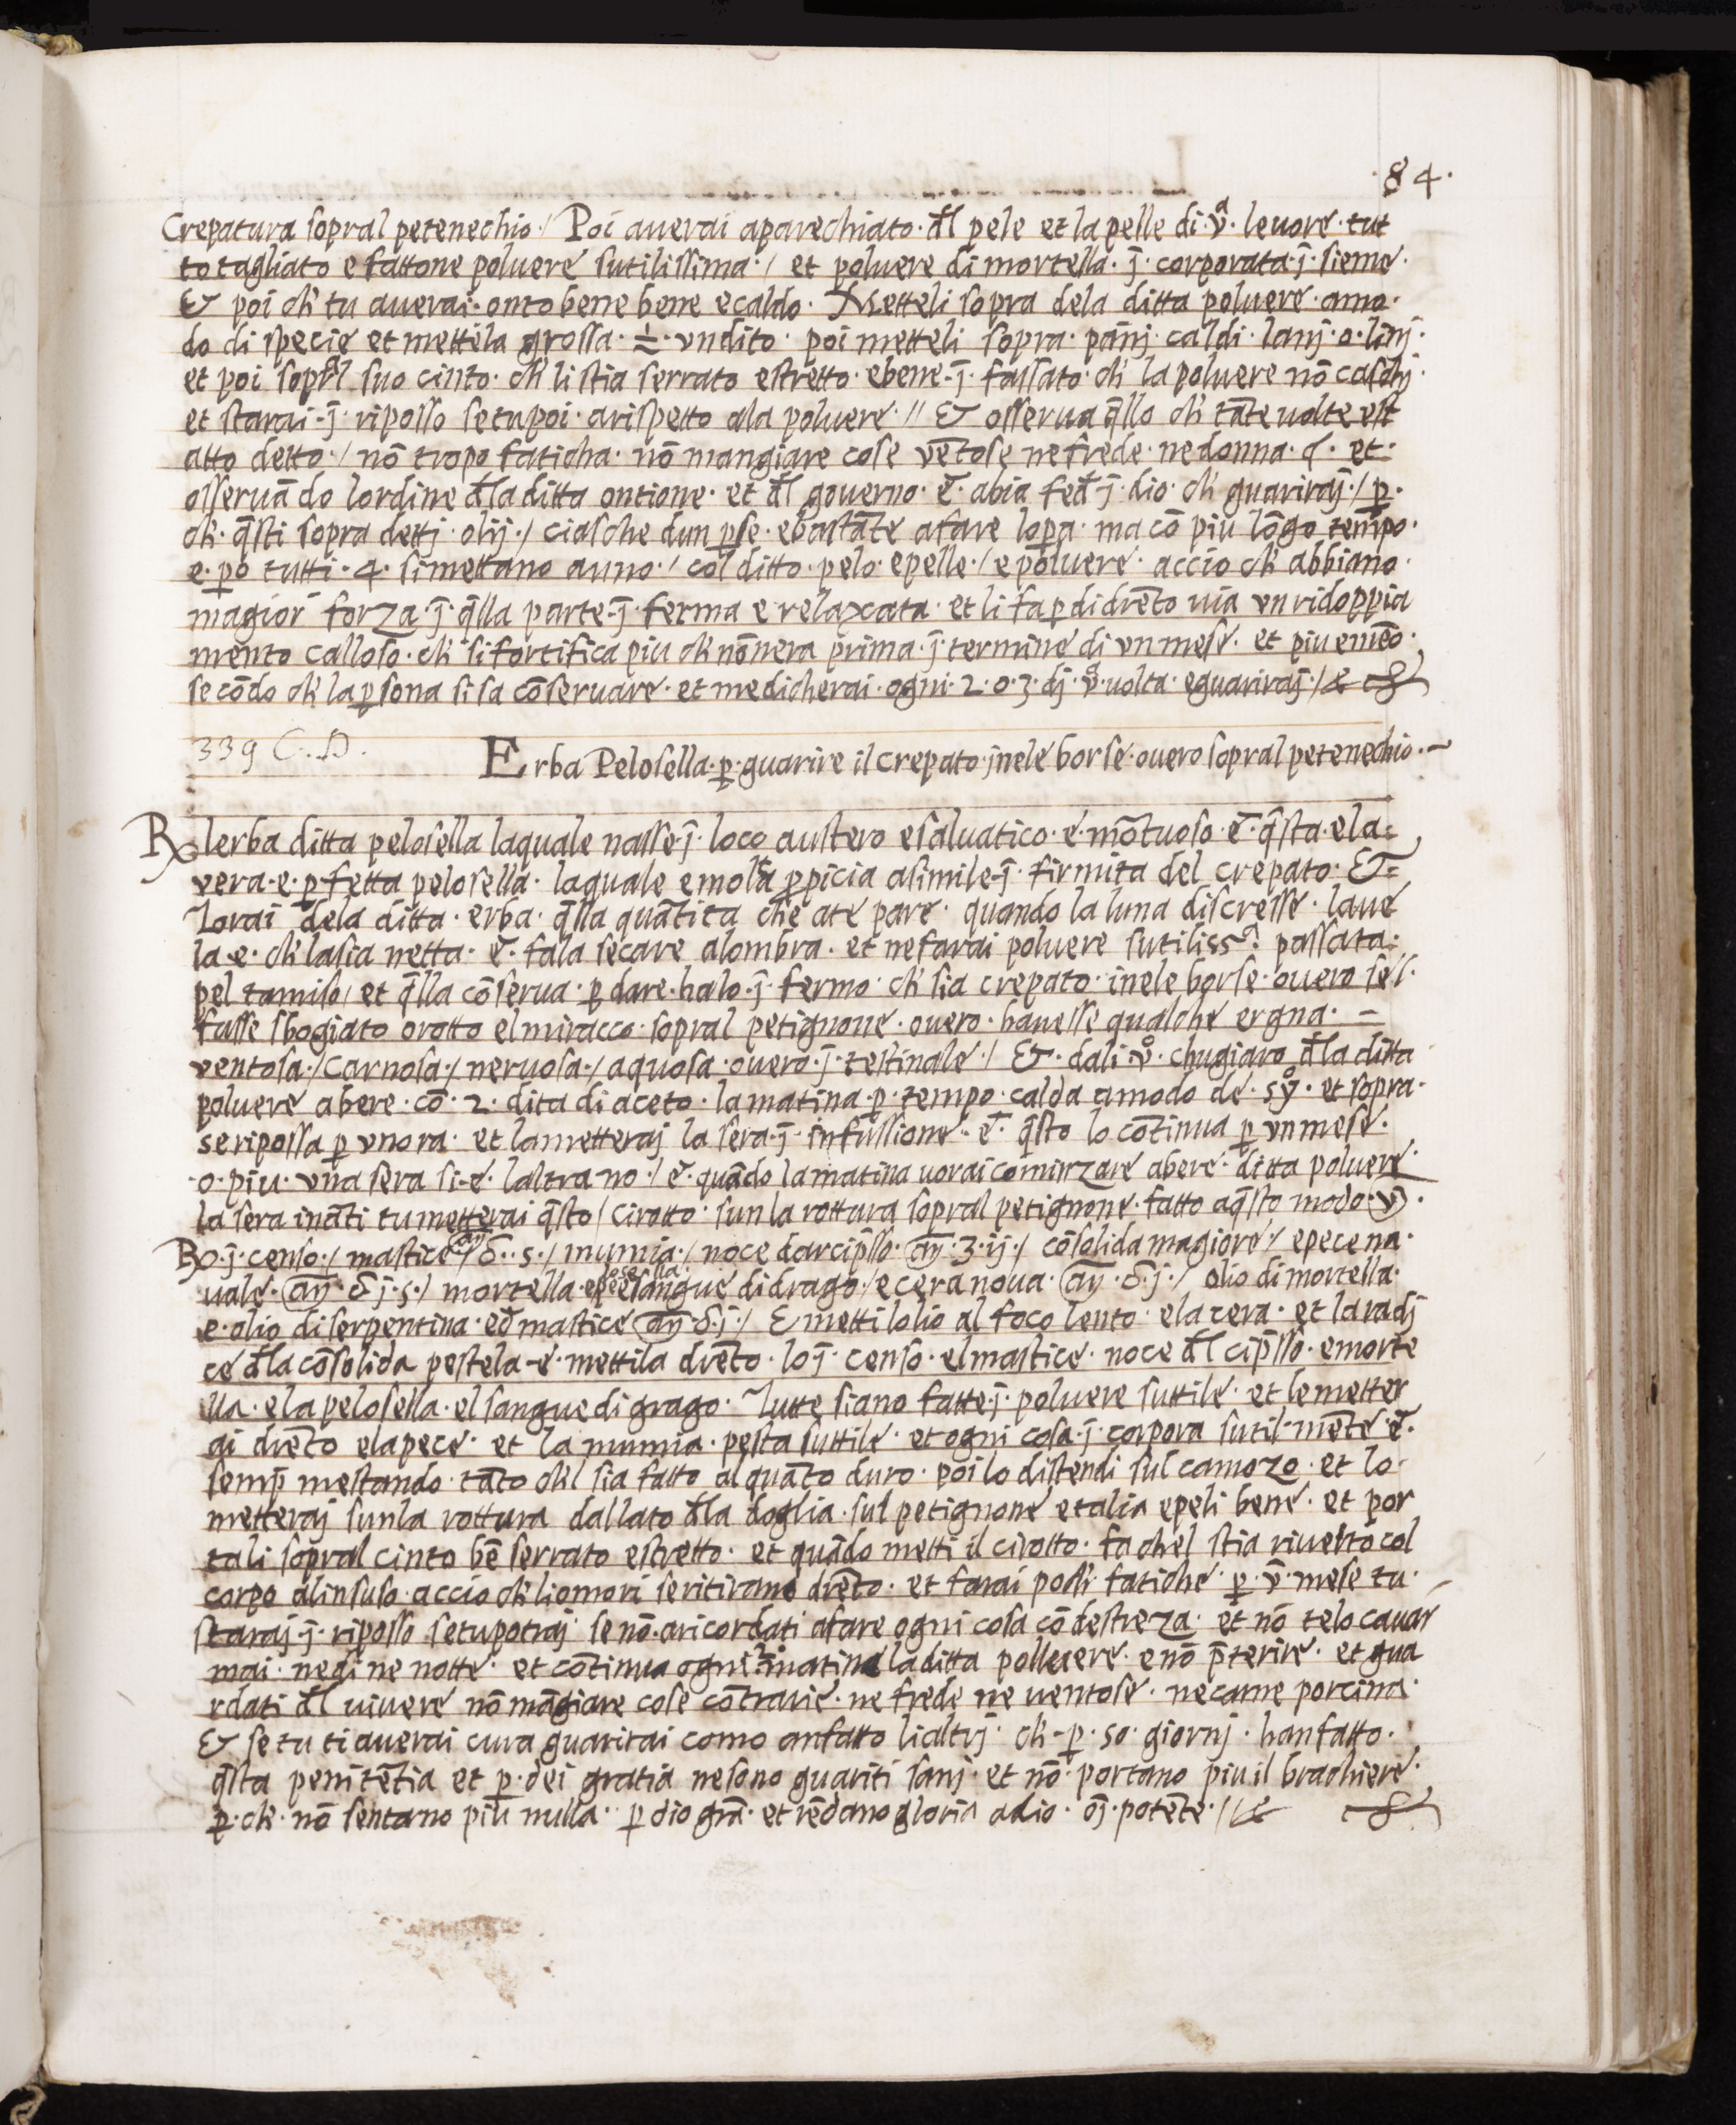 ·84·
Crepatura sopral petenechio·/ Poi auerai aparechiato· d̄l pele et la pelle di· v̊ᵃ· leuore· tut
to tagliato e fattone poluere sutilissima·/ et poluere di mortella· j̄· corporata· j̄· sieme·
& poi ch' tu auerai· onto bene bene e caldo· Metteli sopra dela ditta poluere· amo·
do di specie et mettela grossa· ½· vndito· poi metteli sopra· pan̄j· caldi· lanj· o· linj·
et poi sopral suo cinto· ch' li stia serrato e stretto· e bene· j̄· fassato· ch' la poluere nō caschj·
et starai· j̄· riposso se tu poi· arispetto ala poluere·// & osserua q̄llo ch' tāte uolte est
atto detto·/ nō tropo faticha· nō mangiare cose vētose ne frede· ne donna· et·
osseruādo lordine d̄la ditta ontione· et d̄l gouerno· ē· abia fed̄ j̄· dio· ch' guariraj·/ p̱·
ch'· q̄sti sopra dettj· olij·/ ciasche dun p̱se· e bastāte afare lopa· ma cō piu lōgo tēmpo·
e· po tutti· 4· si mettano a uno·/ col ditto· pelo· e pelle·/ e poluere· accio ch' abbiano·
magior forza· j̄· q̄lla parte· j̄· ferma e relaxata· et li fa p̱ didrēto uia vn ridoppia
mento calloso· ch' si fortifica piu ch' nōnera prima· j̄· termine di vn mese· et piu e mēo·
secōdo ch' la p̱sona si sa cōseruare· et medicherai· ogni· 2· o· 3· dj· v̊ᵃ· uolta· e guariraj·/ &
339 C. D.
Erba Pelosella· p̱· guarire il crepato· jnele borse· ouero sopral petenechio·~
℞ lerba ditta pelosella laquale nasse· j̄· loco austero e saluatico· e· mōtuoso· ē· q̄sta· e la=
vera· e· p̱fetta pelosella· laquale e molta p̱picia asimile· j̄· firmita del crepato· &=
Torai dela ditta· erba· q̄lla quātita che ate pare· quando la luna discresse· laue
la· e· ch' la sia netta· ē· fala secare alombra· et ne farai poluere sutiliss.ᵃ passata·
pel tamiso/ et q̄lla cōserua· p̱ dare· halo· j̄· fermo· ch' sia crepato· inele borse· ouero sel·
fusse sbogiato orotto el miracco· sopral petignone· ouero· hauesse qualche ergna· –
ventosa·/ carnosa·/ neruosa·/ aquosa· ouero· j̄· testinale·/ &· dali· v̊· chugiaro d̄la ditta
poluere abere· cō· 2· dita di aceto· la matina· p̱· tempo· calda amodo de· sy̾· et sopra·
se ripossa p̱ vnora· et la metteraj la sera· j̄· infussione· ē· q̄sto lo cōtinua p̱ vn mese·
·o· piu· vna sera si· e· laltra no·/ ē· quādo la matina uorai cominzare abere· ditta poluere
la sera ināti tu metterai q̄sto/ cirotto· sun la rottura sopral petignone· fatto a q̄sto modo· v̄·
℞ o· j̄· censo·/ mastice añ δ· s·/ mumia·/ noce darcip̄sso· añ· ʒ· ij·/ cōsolida magiore·/ e pece na·
uale· añ· δ j· s·/ mortella· e pelosella· e sangue di drago·/ e cera noua· añ· δ· j·/ olio di mortella·
e· olio di serpentina· e d̄ mastice añ· δ· j·/ E metti lolio al foco lento· e la cera· et la radj
ce d̄la cōsolida pestela· e· mettila drēto· lo j̄· censo· el mastice· noce d̄l cip̄sso· e morte
lla· e la pelosella· el sangue di grago· Tutte siano fatte· j̄· poluere suttile· et le metter
ai drēto e la pece· et la mumia· pesta suttile· et ogni cosa· j̄· corpora sutil mēte ē·
semp̄ mestando· tāto ch'l sia fatto alquāto duro· poi lo distendi sul camozo· et lo·
metteraj sun la rottura dallato d̄la doglia· sul petignone e talia e peli bene· et por
tali sopral cinto bē serrato e stretto· et quādo metti il cirotto· fa chel stia riuerto col
corpo alinsuso· accio ch' li omori se ritirano drēto· et farai pochi fatiche· p̱· v̄· mese tu·
staraj· j̄· riposso se tu potraj· se nō· aricordati afare ogni cosa cō destreza· et nō te lo cauar
mai· ne di ne notte· et cōtinua ogni matina la ditta polluere· e nō p̄terire· et gua
rdati d̄l uiuere nō māgiare cose cōtrarie· ne frede ne uentose· ne carne porcina·
& se tu ti auerai cura guarirai como an fatto li altrj· ch'· p̱· 50· giornj· han fatto·
q̄sta penitētia et p̱· dei gratia ne sono guariti sanj· et nō· portano piu il brachiere·
p̱· ch'· nō sentano piu nulla·· p̱ dio grā· et rēdano gloria a dio· oj̄· potēte·/ &